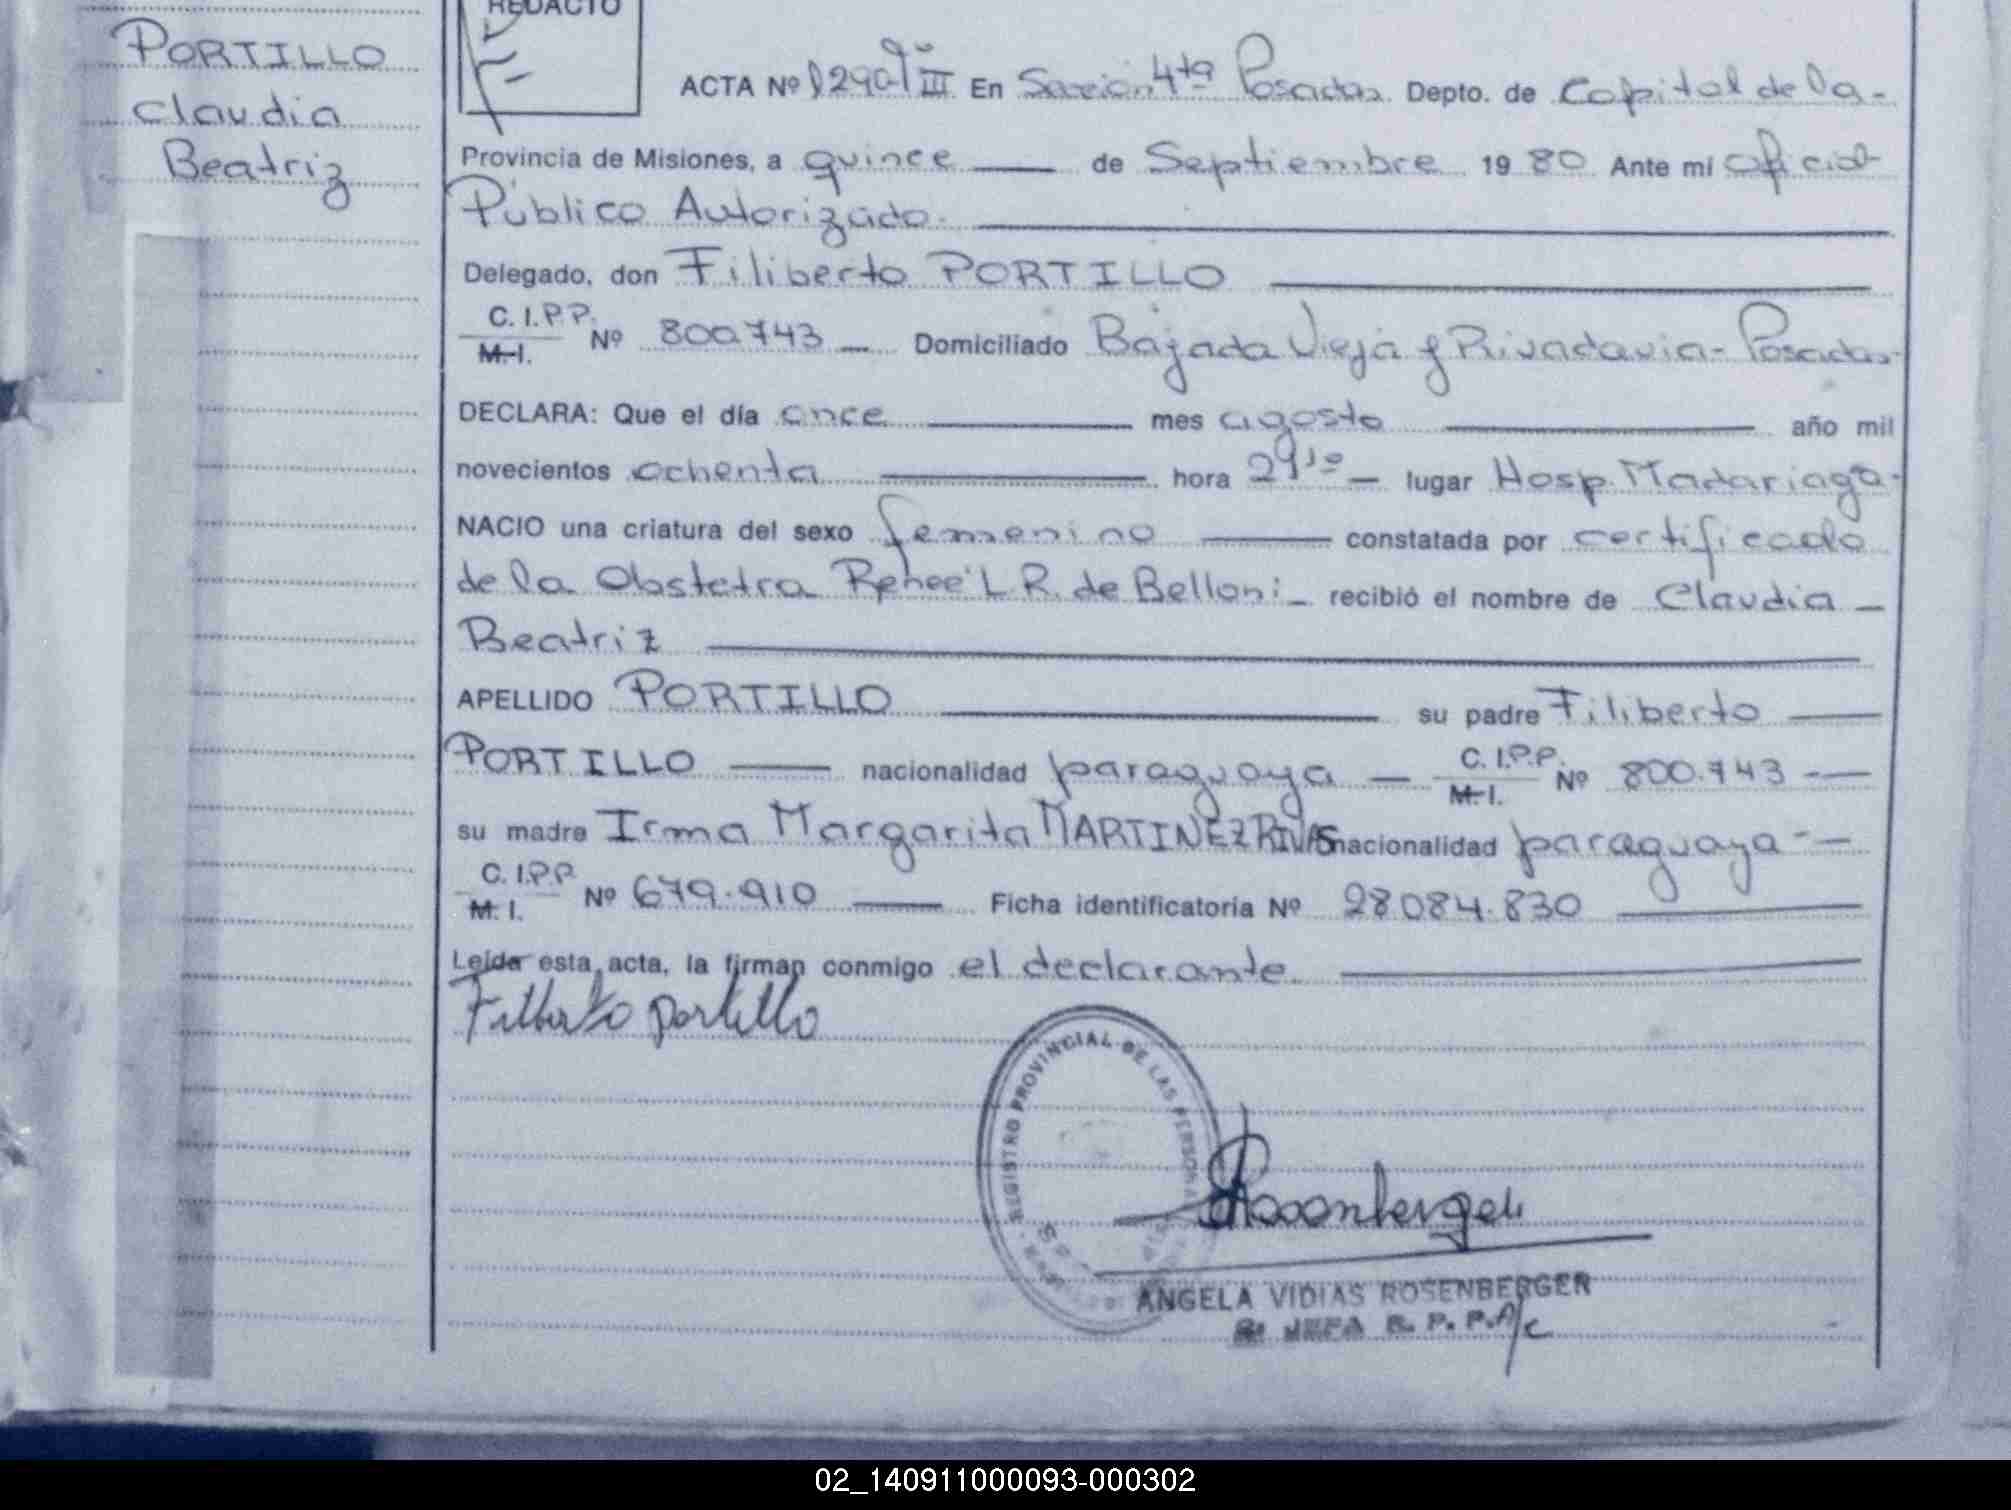 REDACTO
PORTILLO
Claudia
Beatriz
ACTA Nº 1290 Tº III En Sección 4ta Posadas Depto. de Capital de la-
Provincia de Misiones, a quince de Septiembre 1980 Ante mi Oficial
Público Autorizado.
Delegado, don Filiberto PORTILLO
C.I.P.P.
M.I. Nº 800.743 Domiciliado Bajada Vieja y Rivadavia- Posadas-
DECLARA: Que el día once mes agosto año mil
novecientos ochenta hora lugar Hosp. Madariaga-
NACIO una criatura del sexo femenino constatada por certificado
de la Obstetra Reneé L R. de Belloni- recibió el nombre de Claudia -
Beatriz
APELLIDO PORTILLO su padre Filiberto
PORTILLO nacionalidad paraguaya - C.I.P.P.
M.I. Nº 800.743
su madre Irma Margarita MARTINEZ RIVAS nacionalidad paraguaya - -
C.I.P.P.
M.I. Nº 679.910 Ficha identificatoria Nº 28084.830
Leída esta acta, la firman conmigo el declarante.
Filiberto portillo
REGISTRO PROVINCIAL DE LAS PERSONAS
Rosenberger
ANGELA VIDIAS ROSENBERGER
JEFA R. P. P. A/c
02_140911000093-000302